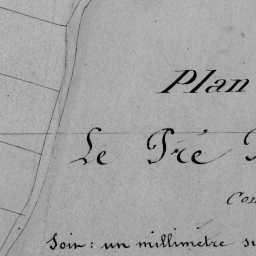 Plan
Le Pré
Con
Soit : un millimètre su